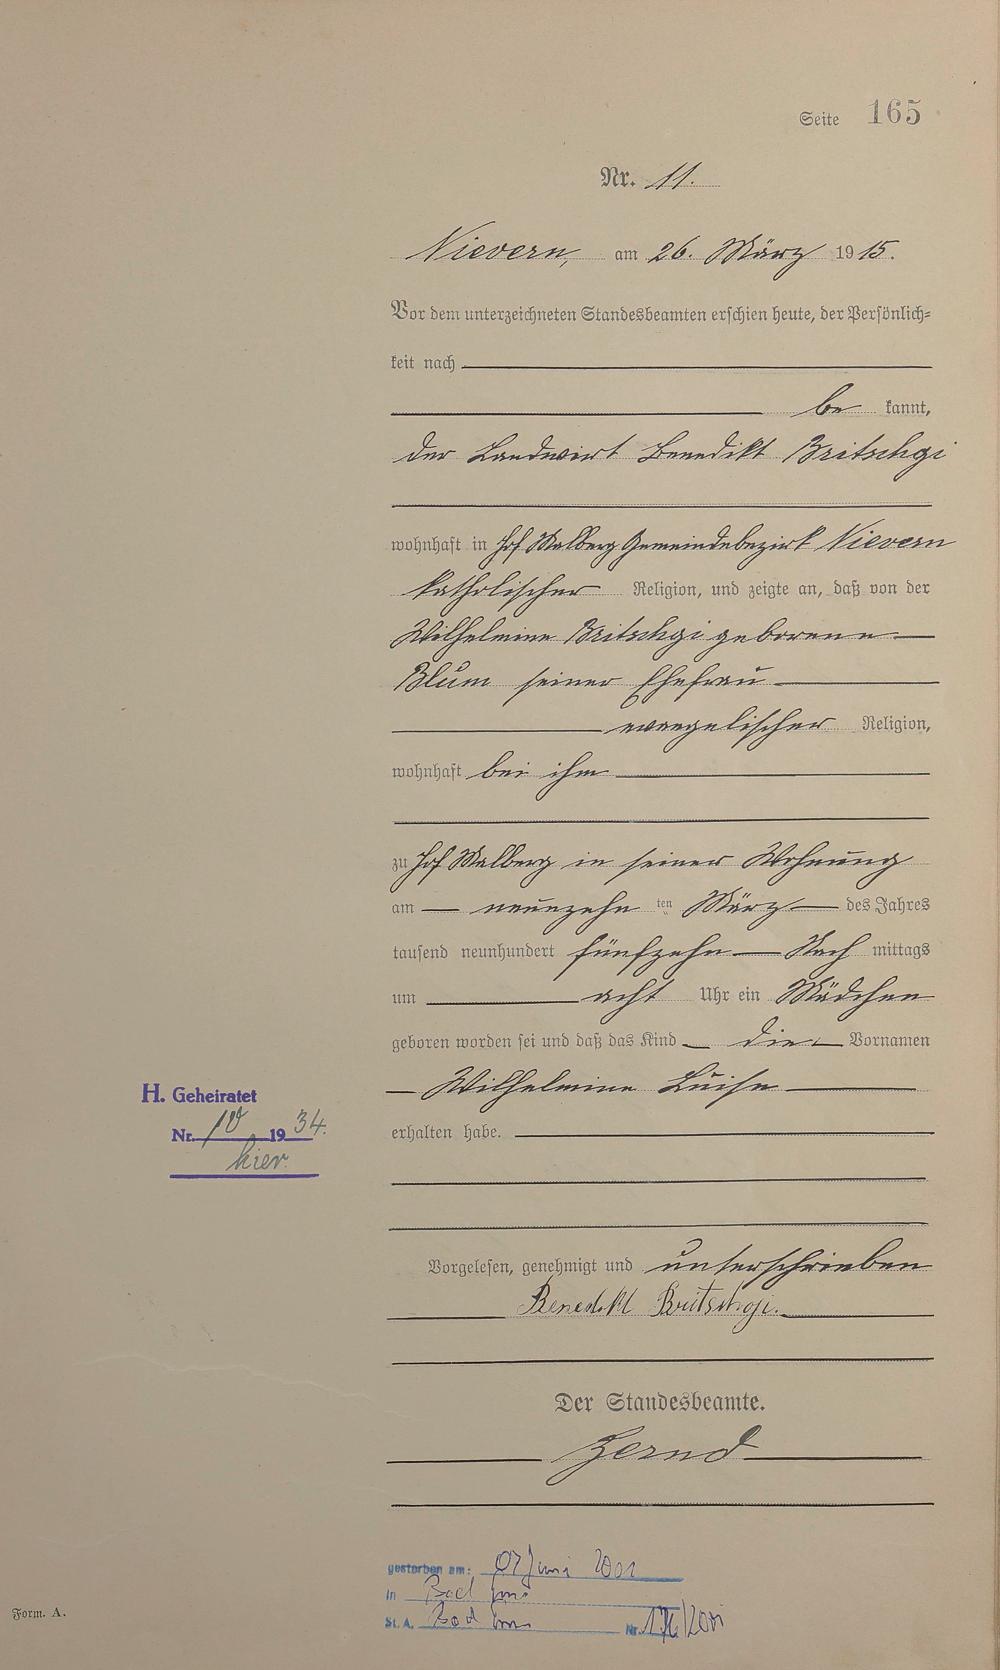 Seite 165
Nr. 11.
Nievern, am 26. März 1915.
Vor dem unterzeichneten Standesbeamten erschien heute, der Persönlich-
keit nach
be kannt,
der Landwirt Benedikt Britschgi
wohnhaft in Hof Malberg Gemeindebezirk Nievern
katholischer Religion, und zeigte an, daß von der
Wilhelmine Britschgi geborene
Blum seiner Ehefrau
evangelischer Religion,
wohnhaft bei ihm
zu Hof Malberg in seiner Wohnung
am neunzehn ten März des Jahres
tausend neunhundert fünfzehn Nach mittags
um acht Uhr ein Mädchen
geboren worden sei und daß das Kind die Vornamen
Wilhelmine Luise
H. Geheiratet
Nr. 10 1934.
hier.
erhalten habe.
Vorgelesen, genehmigt und unterschrieben
Benedikt Britschgi.
Der Standesbeamte.
gestorben am: 07 Juni 2001
in Bad Ems
St. A. Bad Ems Nr. /2001
Form. A.